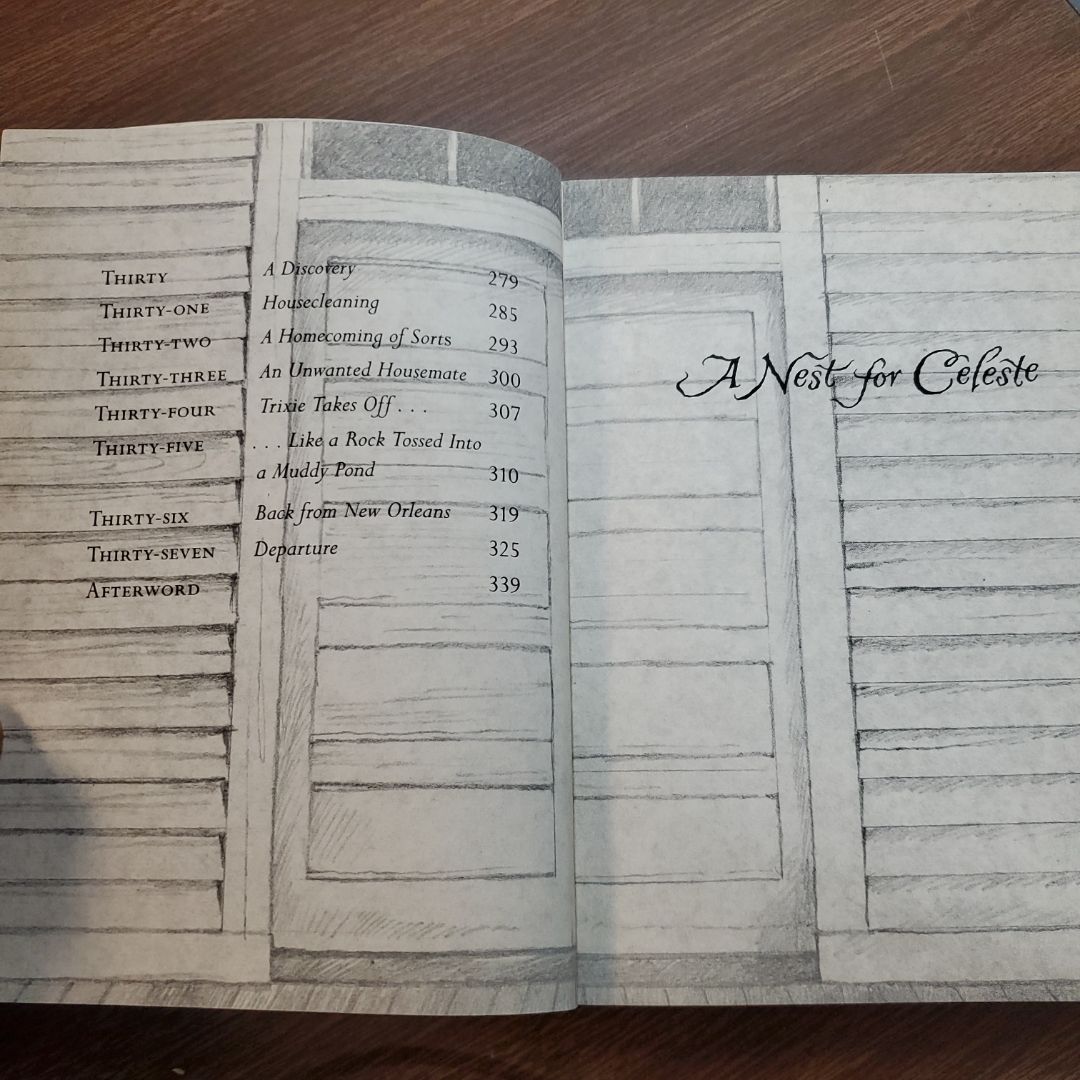 THIRTY A Discovery 279
THIRTY-ONE Housecleaning 285
THIRTY-TWO A Homecoming of Sorts 293
THIRTY-THREE An Unwanted Housemate 300
THIRTY-FOUR Trixie Takes Off . . . 307
THIRTY-FIVE . . . Like a Rock Tossed Into
a Muddy Pond 310
THIRTY-SIX Back from New Orleans 319
THIRTY-SEVEN Departure 325
AFTERWORD 339
A Nest for Celeste